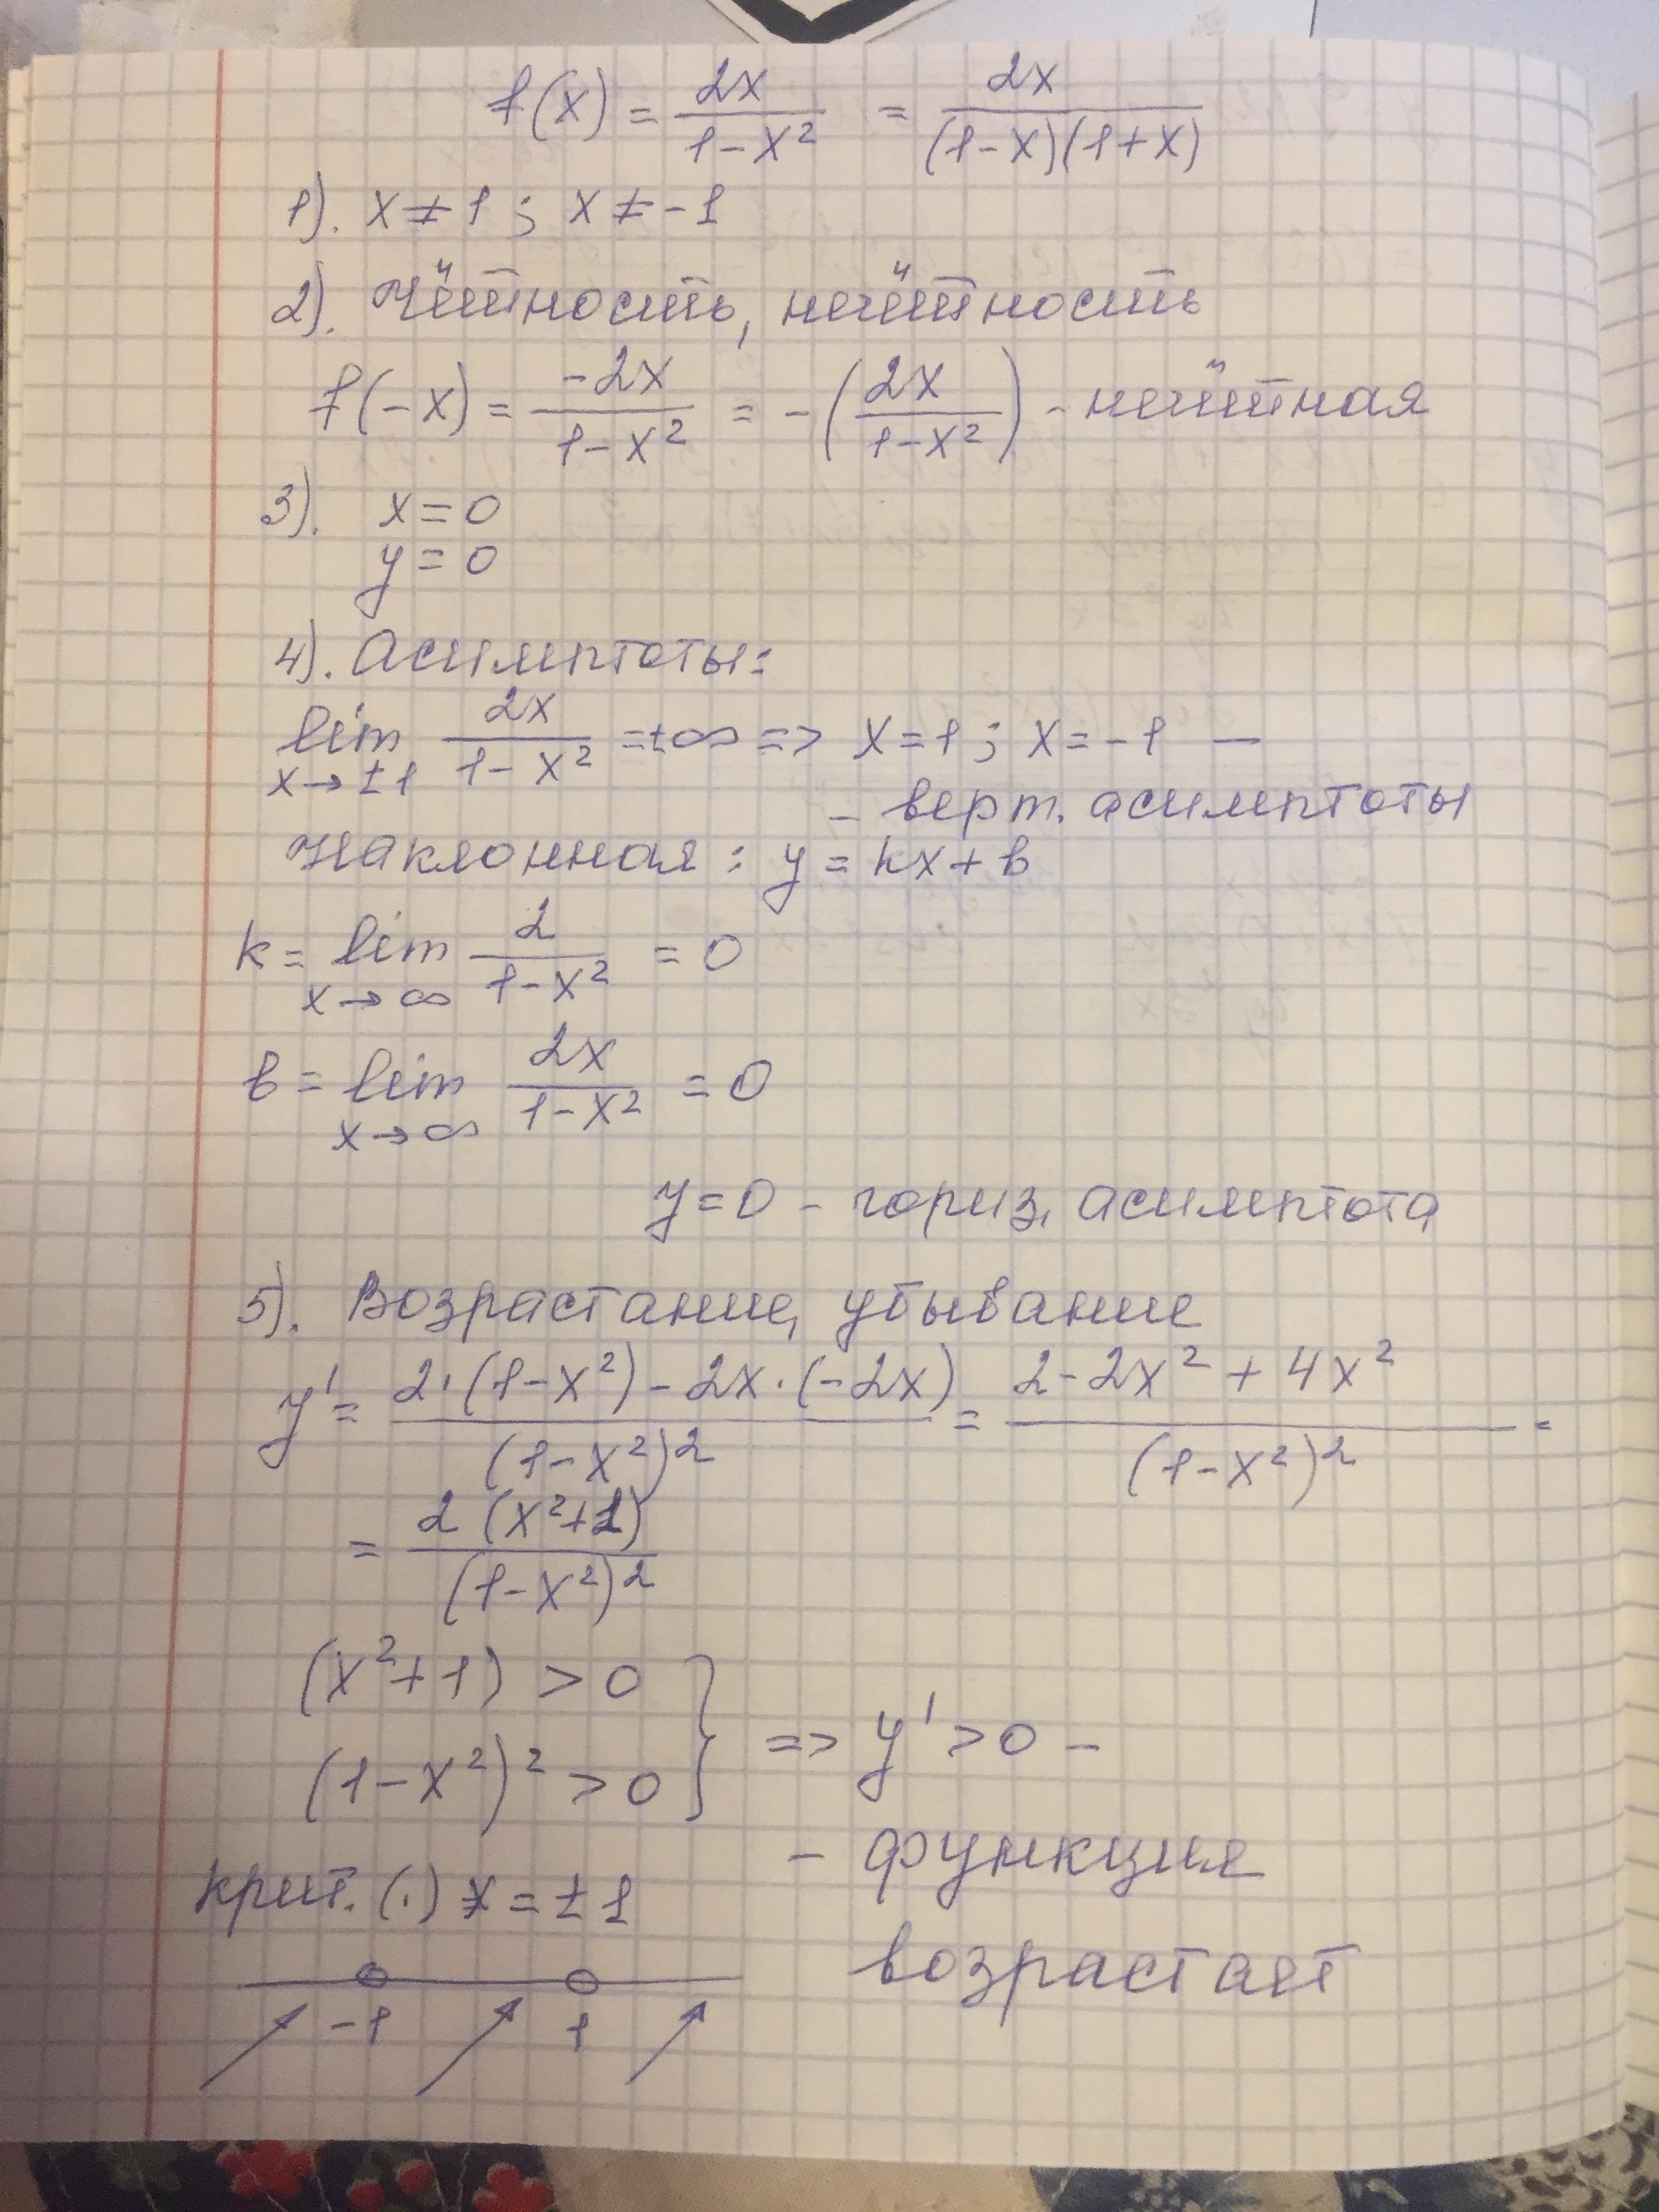 f(x) = 2x/(1-x²) = 2x/((1-x)(1+x))
1). x≠1; x≠-1
2). Чётность, нечётность
f(-x) = -2x/(1-x²) = -(2x/(1-x²)) - нечётная
3). x=0
y=0
4). Асимптоты:
lim x→±1 2x/(1-x²) = ±∞ => x=1; x=-1 –
– верт. асимптоты
Наклонная: y=kx+b
k = lim x→∞ 2/(1-x²) = 0
b = lim x→∞ 2x/(1-x²) = 0
y=0 – гориз. асимптота
5). Возрастание, убывание
y' = (2·(1-x²)-2x·(-2x))/(1-x²)² = (2-2x²+4x²)/(1-x²)² =
= 2(x²+1)/(1-x²)²
(x²+1) > 0
(1-x²)² > 0 } => y' > 0 –
– функция
возрастает
крит. (.) x = ±1
-1 1